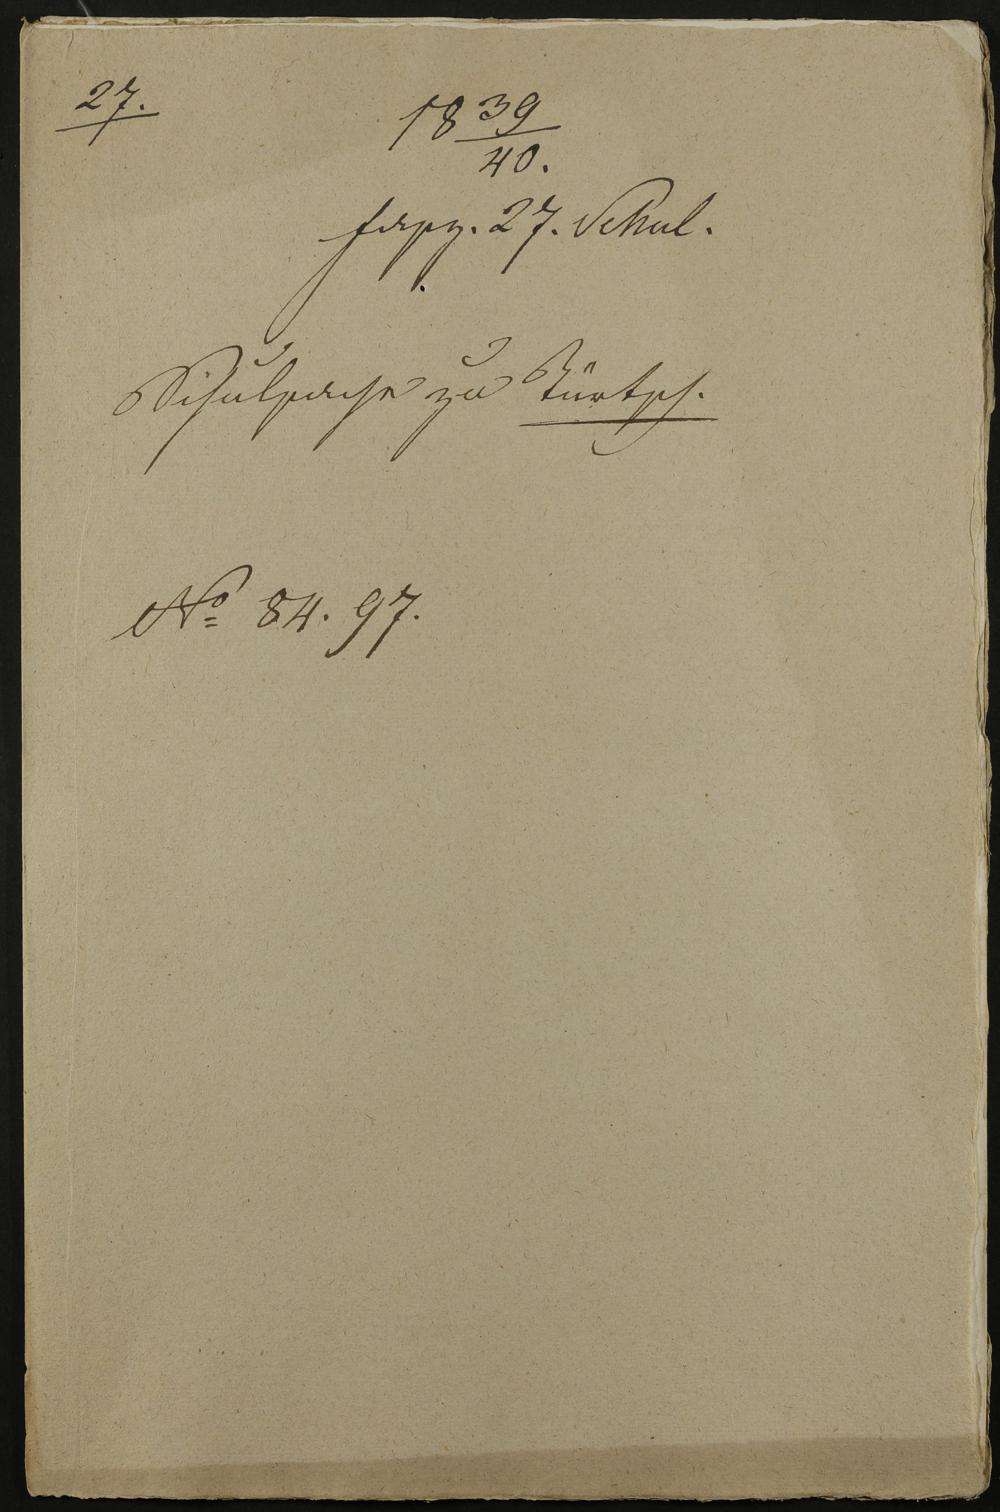 27.
18 39/40.
fasz. 27. Schul.
Schulsache zu Türtsch.
No 84. 97.